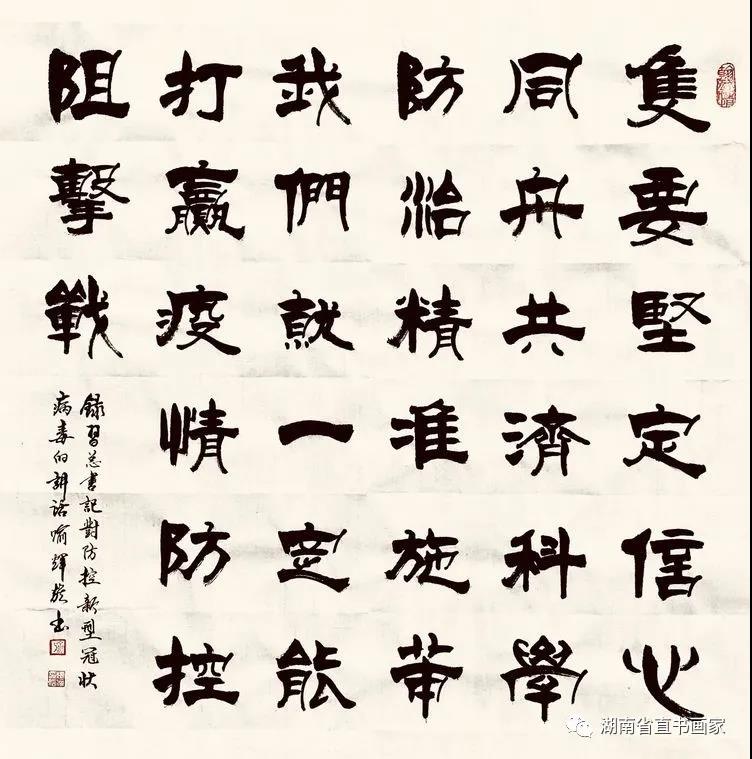 隻要堅定信心
同舟共濟科學
防治精准施策
我們就一定能
打贏疫情防控
阻擊戰
錄習总書記對防控新型冠狀
病毒的講話喻輝書
湖南省直书画家